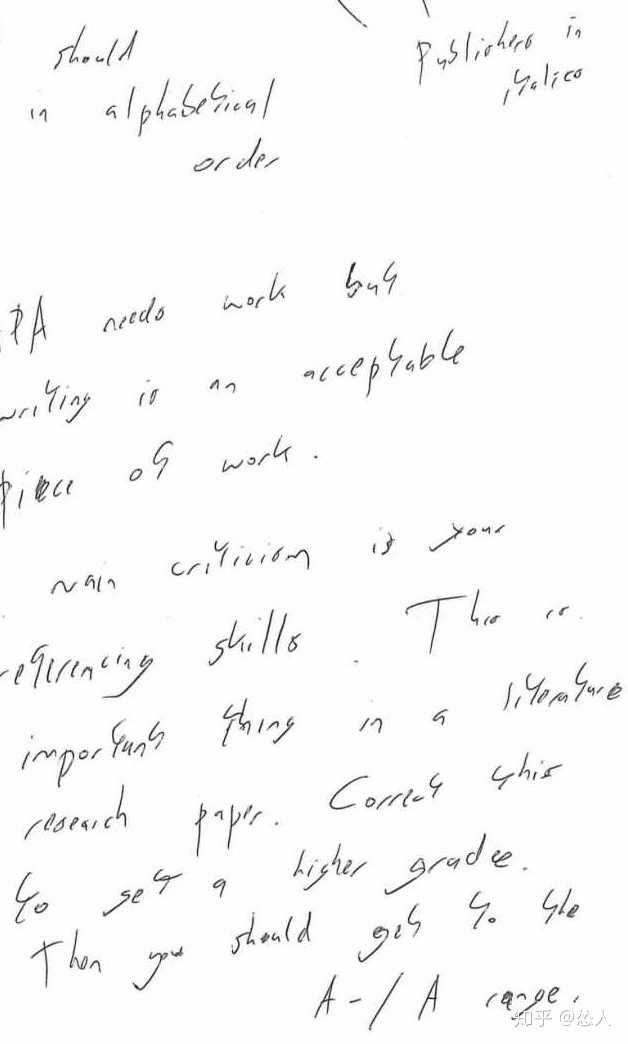 should
in alphabetical
order
Publishers in
italics
PA needs work but
writing is an acceptable
piece of work.
main criticism is your
referencing skills. This is
important thing in a literature
research paper. Correct this
to get a higher grade.
Then you should get to the
A-/A range.
知乎 @怂人